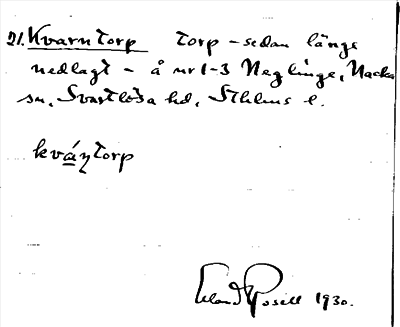 21. Kvarntorp torp – sedan länge
nedlagt – å nr 1-3 Neglinge, Nacka
sn, Svartlösa hd, Sthlms l.
kváŋtorp
Erland Rosell 1930.